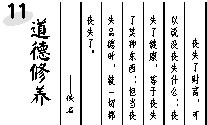 11
道德修养
——佚名
丧失了财富,可
以说没丧失什么;丧
失了健康,等于丧失
了某种东西;但当丧
失品德时,就一切都
丧失了。